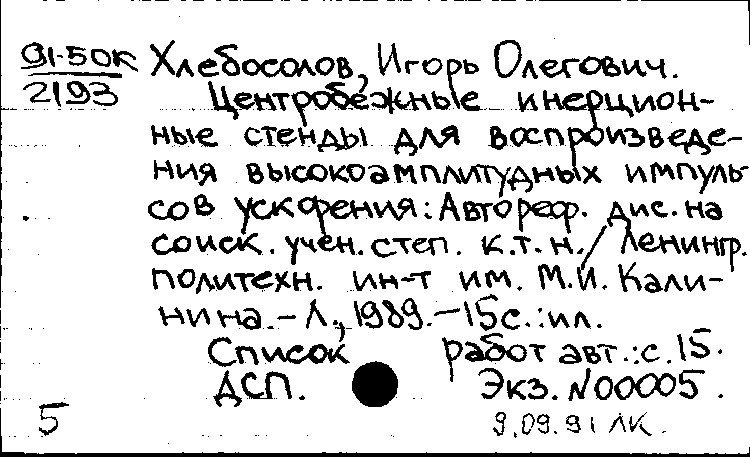 91-50К
2193
Хлебосолов, Игорь Олегович.
Центробежные инерцион-
ные стенды для воспроизведе-
ния высокоамплитудных импуль-
сов ускорения: Автореф. дис. на
соиск. учен. степ. к.т.н./Ленингр.
политехн. ин-т им. М.И. Кали-
нина. - Л., 1989. - 15с.: ил.
Список работ авт.: с. 15.
ДСП. Экз. N00005.
5
9.09.91 ЛК.